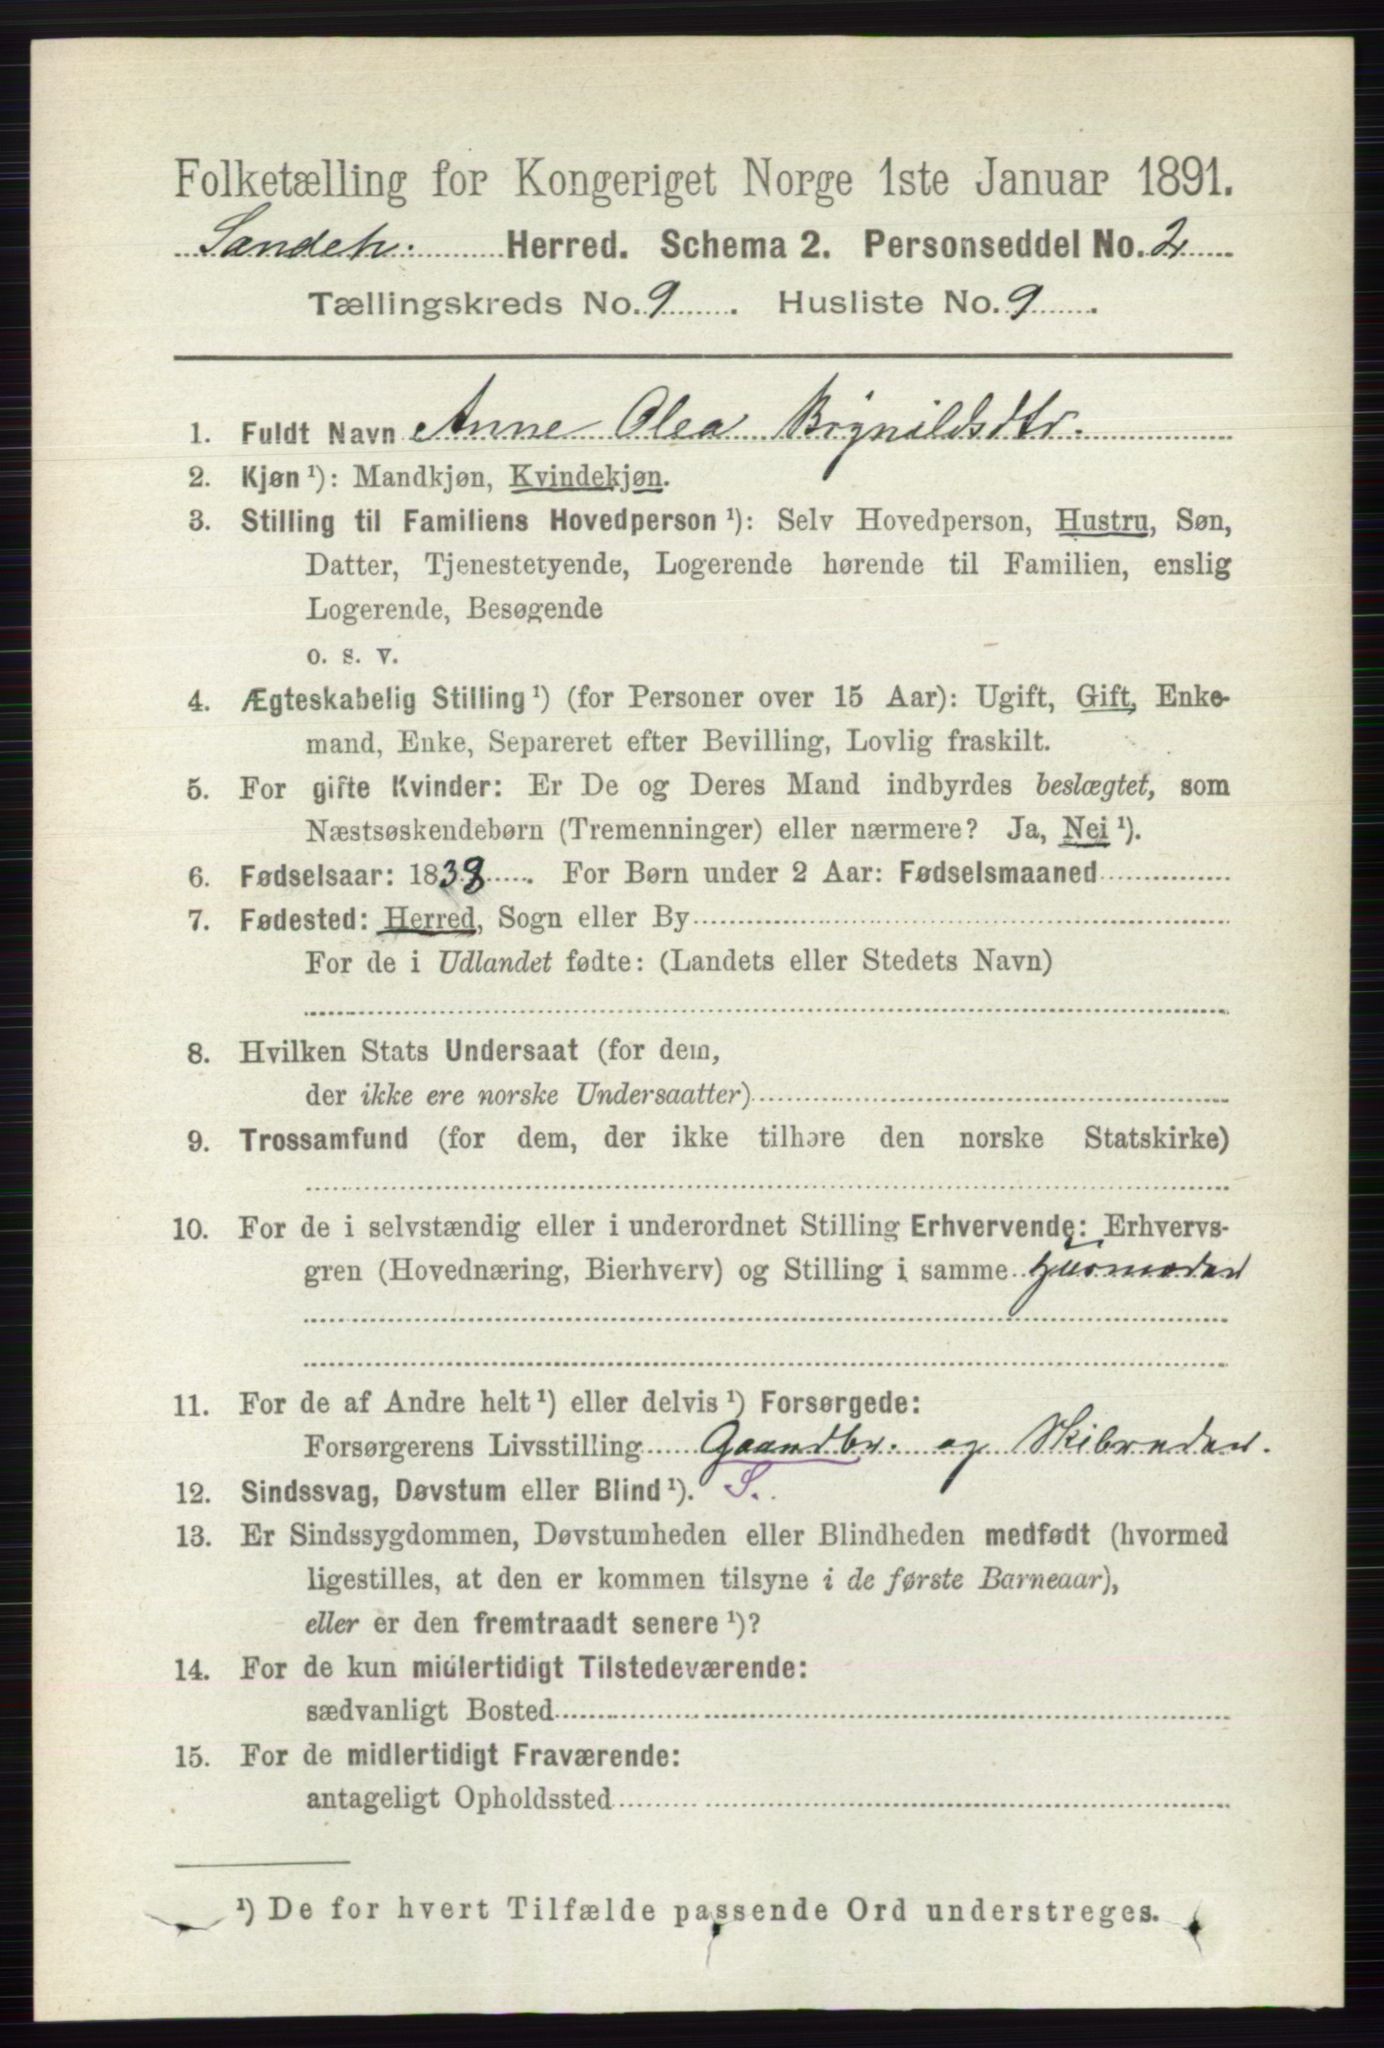 Folketælling for Kongeriget Norge 1ste Januar 1891.
Sandeh. Herred. Schema 2. Personseddel No. 2
Tællingskreds No. 9. Husliste No. 9.
1. Fuldt Navn Anne Olea Brynildsdtr.
2. Kjøn ¹): Mandkjøn, Kvindekjøn.
3. Stilling til Familiens Hovedperson ¹): Selv Hovedperson, Hustru, Søn,
Datter, Tjenestetyende, Logerende hørende til Familien, enslig
Logerende, Besøgende
o. s. v.
4. Ægteskabelig Stilling ¹) (for Personer over 15 Aar): Ugift, Gift, Enke-
mand, Enke, Separeret efter Bevilling, Lovlig fraskilt.
5. For gifte Kvinder: Er De og Deres Mand indbyrdes beslægtet, som
Næstsøskendebørn (Tremenninger) eller nærmere? Ja, Nei ¹).
6. Fødselsaar: 1838. For Børn under 2 Aar: Fødselsmaaned
7. Fødested: Herred, Sogn eller By
For de i Udlandet fødte: (Landets eller Stedets Navn)
8. Hvilken Stats Undersaat (for dem,
der ikke ere norske Undersaatter)
9. Trossamfund (for dem, der ikke tilhøre den norske Statskirke)
10. For de i selvstændig eller i underordnet Stilling Erhvervende: Erhvervs-
gren (Hovednæring, Bierhverv) og Stilling i samme Husmoder
11. For de af Andre helt ¹) eller delvis ¹) Forsørgede:
Forsørgerens Livsstilling Gaardbr. og Skibreder.
12. Sindssvag, Døvstum eller Blind ¹). S.
13. Er Sindssygdommen, Døvstumheden eller Blindheden medfødt (hvormed
ligestilles, at den er kommen tilsyne i de første Barneaar),
eller er den fremtraadt senere ¹)?
14. For de kun midlertidigt Tilstedeværende:
sædvanligt Bosted
15. For de midlertidigt Fraværende:
antageligt Opholdssted
¹) De for hvert Tilfælde passende Ord understreges.